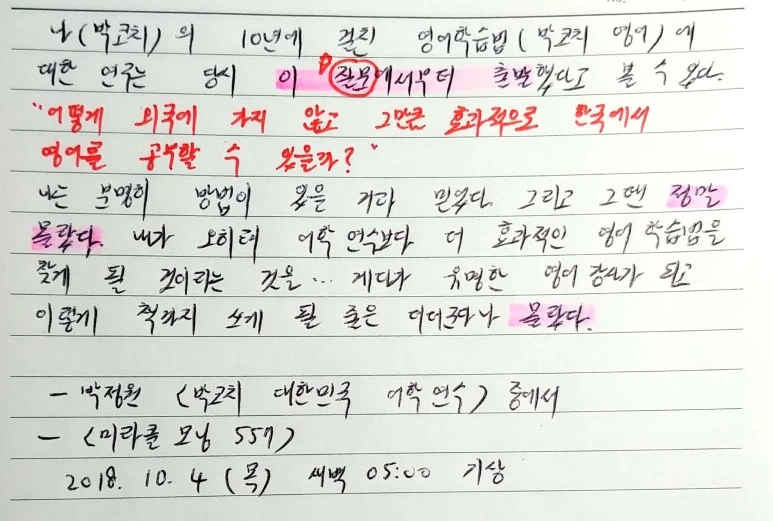 나(박코치)의 10년에 걸친 영어학습법(박코치 영어)에
대한 연구는 당시 이 질문에서부터 출발했다고 볼 수 있다.
"어떻게 외국에 가지 않고 그만큼 효과적으로 한국에서
영어를 공부할 수 있을까?"
나는 분명히 방법이 있을 거라 믿었다. 그리고 그땐 정말
몰랐다. 내가 오히려 어학연수보다 더 효과적인 영어 학습법을
찾게 될 것이라는 것을... 게다가 유명한 영어 강사가 되고
이렇게 책까지 쓰게 될 줄은 더더군다나 몰랐다.
- 박정원 <박코치 대한민국 어학연수> 중에서
- <미라클 모닝 557>
2018. 10. 4 (목) 새벽 05:00 기상